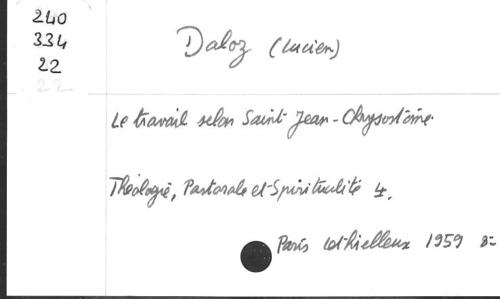 240
334
22
22
Daloz (Lucien)
Le travail selon Saint Jean-Chrysostôme.
Théologie, Pastorale et Spiritualité 4.
Paris Lethielleux 1959 8=